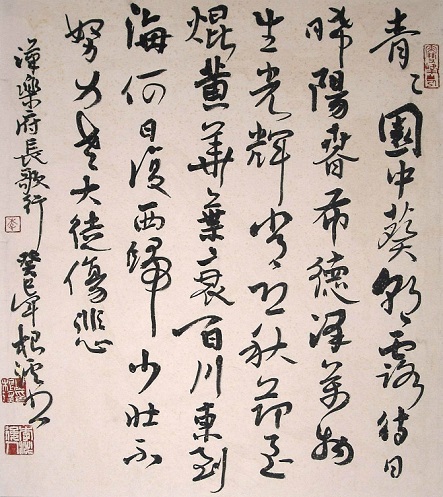 青〻園中葵朝露待日
晞陽春布德澤萬物
生光輝常恐秋節至
焜黄華葉衰百川東到
海何日復西歸少壯不
努力老大徒傷悲
漢樂府長歌行 癸巳年根